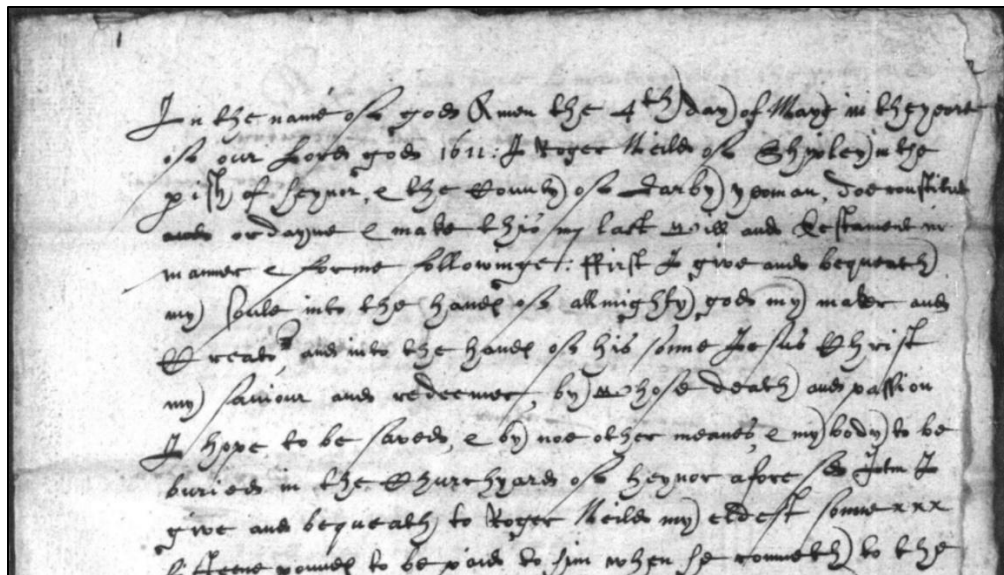 In the name of god Amen the 4th day of Maye in the yeare
of our Lord god 1611: I Roger Neild of Shipley in the
pish of heynor, & the County of Darby yeoman, doe constitute
and ordayne & make this my last Will and Testament in
manner & forme followinge: ffirst I give and bequeath
my soule into the handes of allmighty god my maker and
Creator, and into the handes of his sonne Jesus Christ
my saviour and redeemer, by whose death and passion
I hope to be saved, & by noe other meanes, & my body to be
buried in the Churchyard of heynor afore sd Itm I
give and bequeath to Roger Neild my eldest sonne xxx
fifteene poundes to be paid to him when he commeth to the